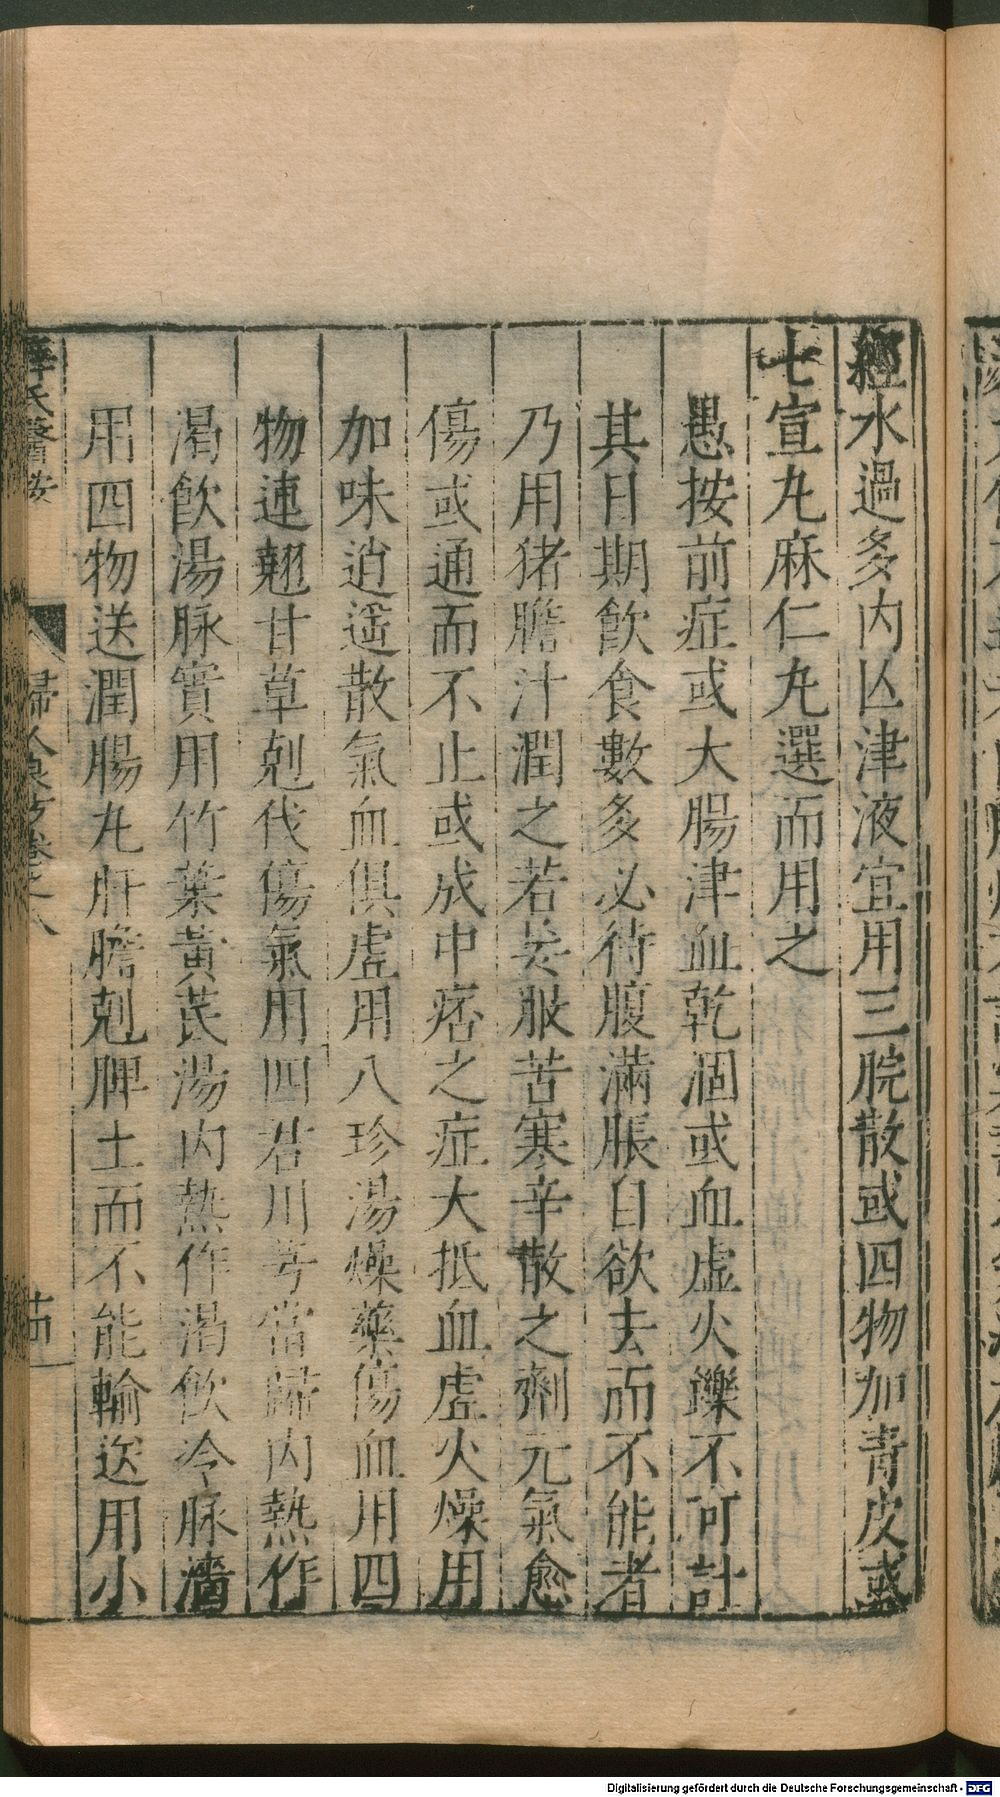 經水過多内亾津液宜用三脘散或四物加青皮或
七宣丸麻仁丸選而用之
愚按前症或大腸津血乾涸或血虚火鑠不可計
其日期飲食數多必待腹滿脹自欲去而不能者
乃用猪膽汁潤之若妄服苦寒辛散之劑元氣愈
傷或通而不止或成中痞之症大抵血虚火燥用
加味逍遥散氣血俱虚用八珍湯燥藥傷血用四
物連翹甘草剋伐傷氣用四君川芎當歸内熱作
渴飲湯脉實用竹葉黃茋湯内熱作渴飲冷脉濇
用四物送潤腸丸肝膽剋脾土而不能輸送用小
薛氏醫按 婦人良方卷之八
Digitalisierung gefördert durch die Deutsche Forschungsgemeinschaft - DFG